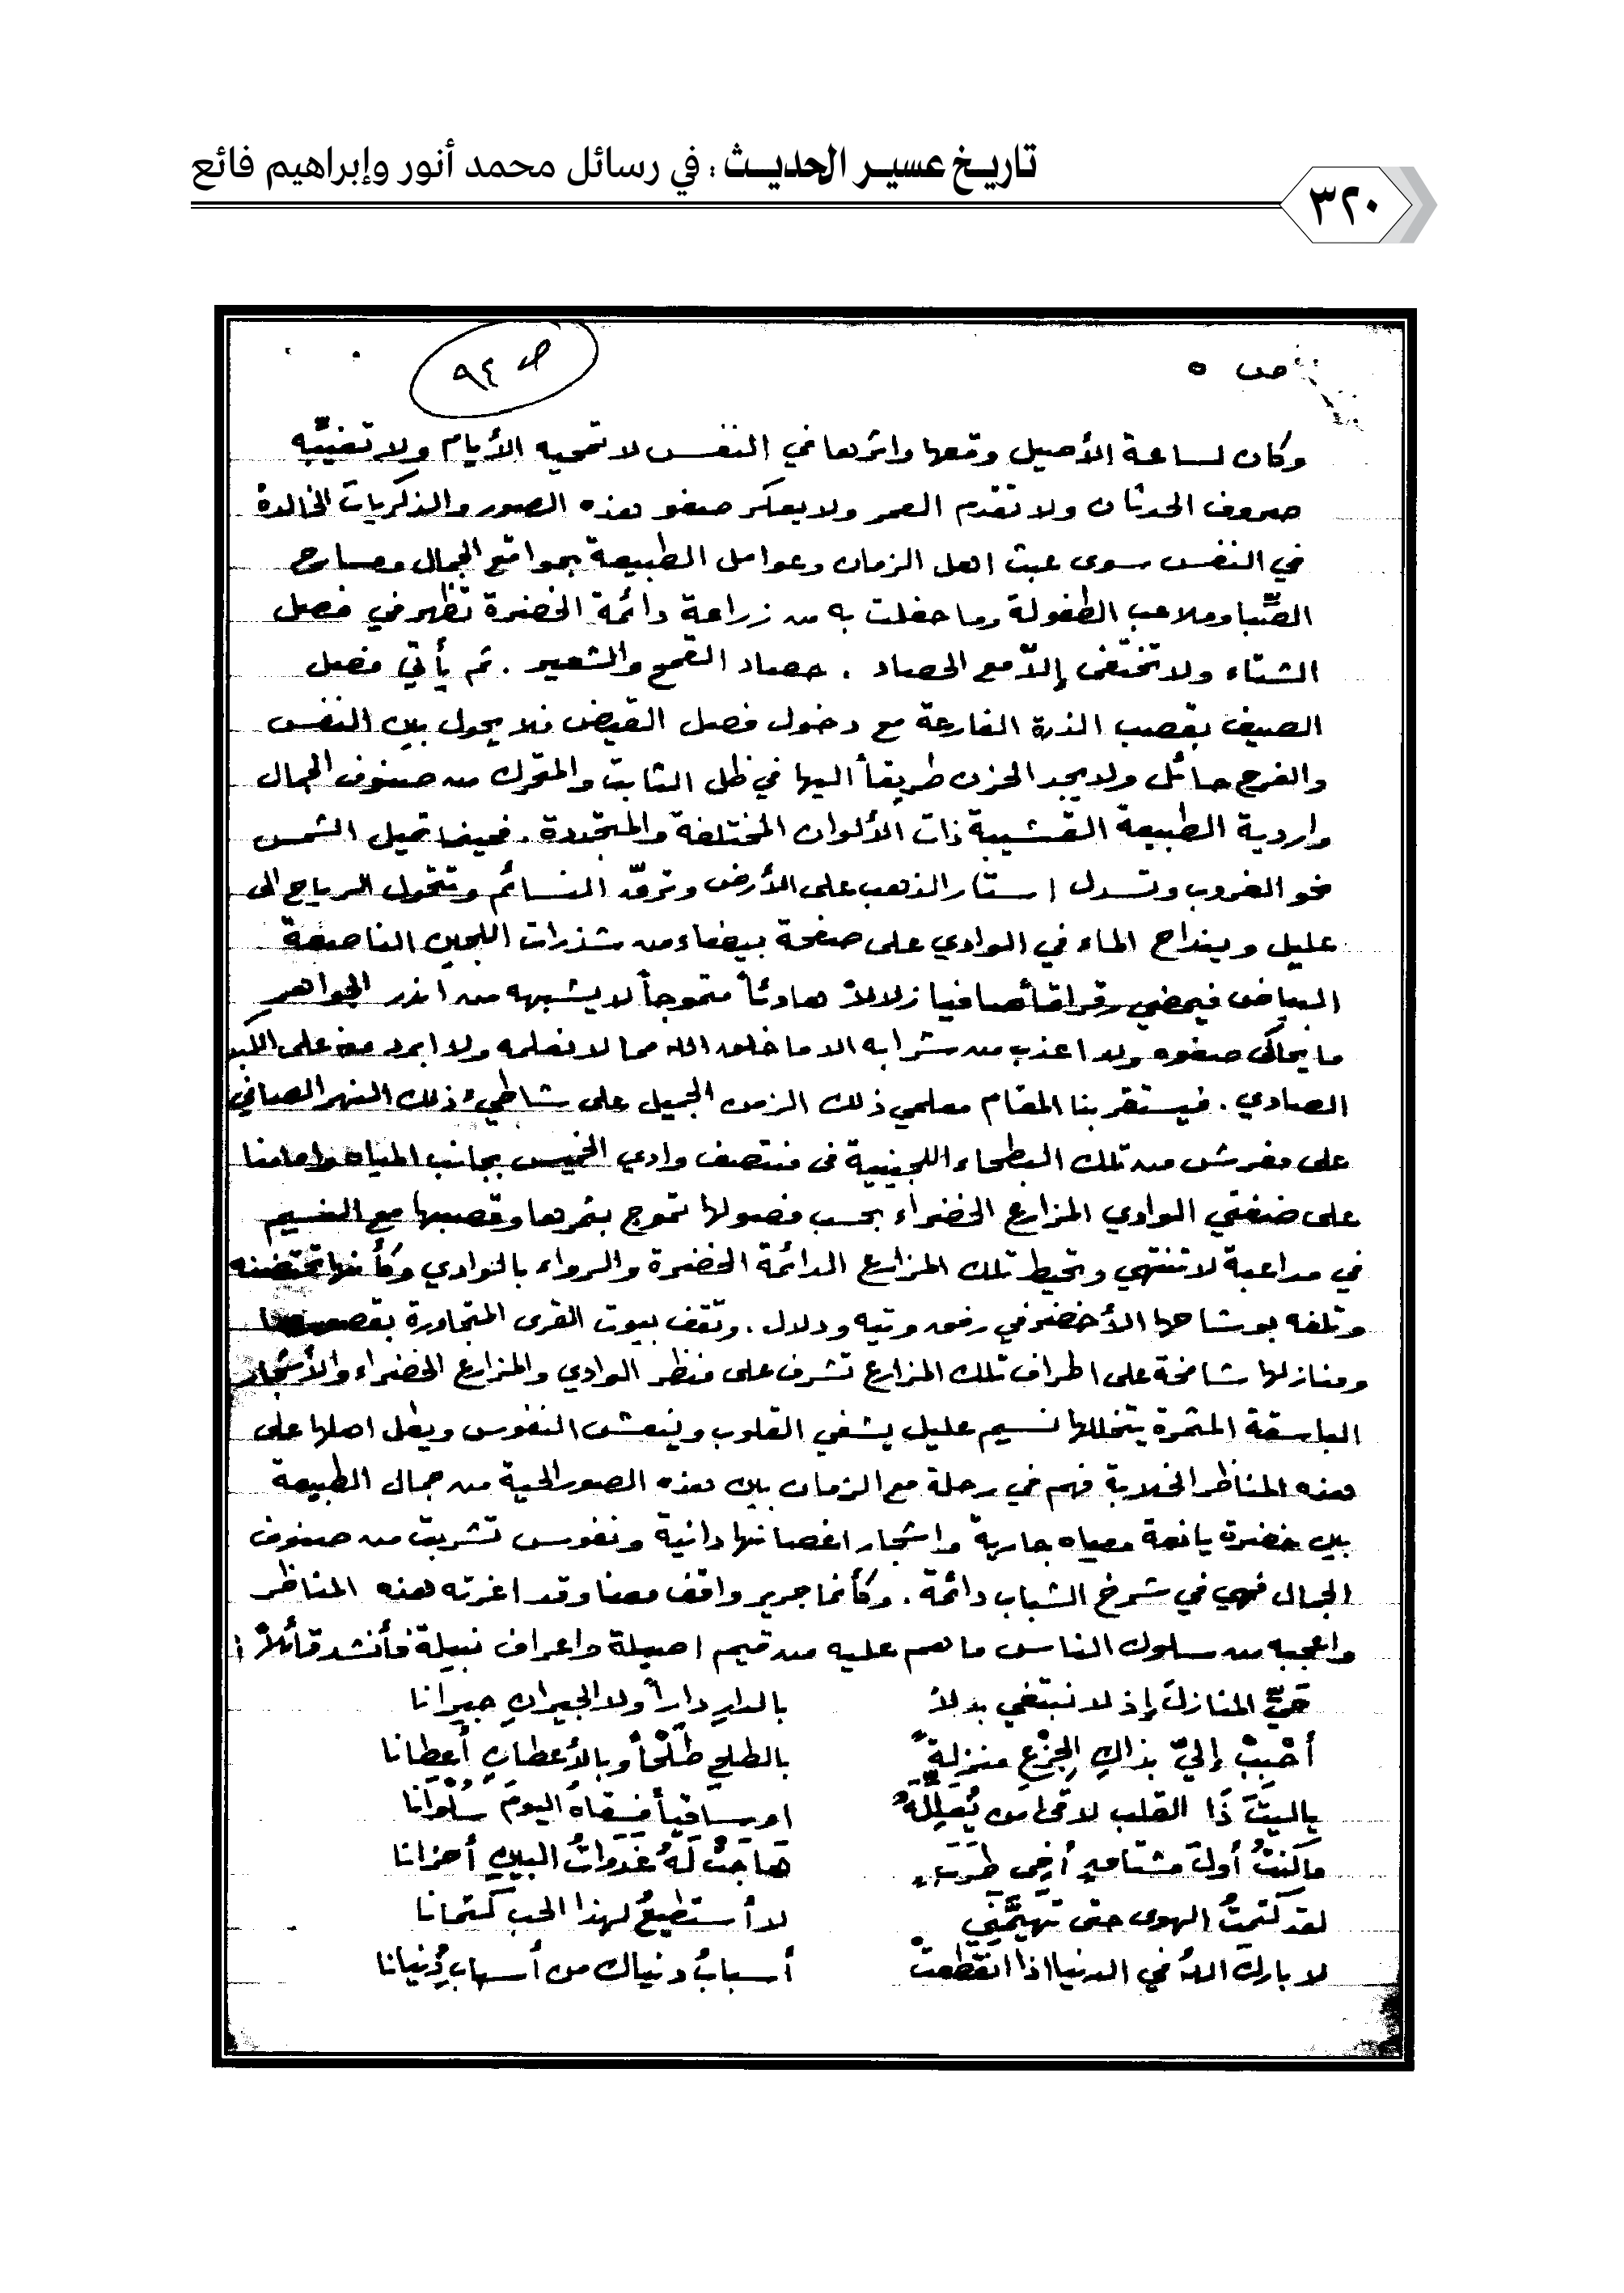 تاريخ عسير الحديث : في رسائل محمد أنور وإبراهيم فائع
٣٢٠
ص ٥
ص ٩٤
وكان لساعة الأصيل وقعها واثرها في النفس لا تمحيه الأيام ولا تغيبّه
صروف الحدثان ولا تقدم العمر ولا يعكر صفو هذه الصور والذكريات الخالدة
في النفس سوى عبث اهل الزمان وعوامل الطبيعة بمواقع الجمال ومسارح
الصِّبا وملاعب الطفولة وما حفلت به من زراعة دائمة الخضرة تظهر في فصل
الشتاء ولا تختفى إلاّ مع الحصاد . حصاد القمح والشعير . ثم يأتي فصل
الصيف بقصب الذرة الفارعة مع دخول فصل القيض فلا يحول بين النفس
والفرح حائل ولا يجد الحزن طريقاً اليها في ظل الثابت والمتحرك من صنوف الجمال
واردية الطبيعة القشيبة ذات الألوان المختلفة والمتجددة . فحينما تميل الشمس
نحو الغروب وتسدل استار الذهب على الأرض وترقّ النسائم وتتحول الرياح الى
عليل وينداح الماء في الوادي على صفحة بيضاء من شذرات اللجين الناصعة
البياض فيمضي رقراقاً صافيا زلالاً هادئاً متموجاً لا يشبهه من انذر الجواهر
ما يحاكى صفوه ولا اعذب من شرابه الا ما خلق الله مما لا نعلمه ولا ابرد منه على الكبد
الصادي . فيستقر بنا المقام معلمي ذلك الزمن الجميل على شاطيء ذلك النهر الصافي
على مفرش من تلك البطحاء اللجينية فى منتصف وادي الخميس بجانب المياه وامامنا
على ضفتي الوادي المزارع الخضراء بحسب فصولها تموج بثمرها وقصبها مع النسيم
في مداعبة لا تنتهي وتحيط تلك المزارع الدائمة الخضرة والرواء بالوادي وكأنها تحتضنه
وتلفه بوشاحها الأخضر في رفق وتيه ودلال . وتقف بيوت القرى المتجاورة
ومنازلها شامخة على اطراف تلك المزارع تشرف على منظر الوادي والمزارع الخضراء والأشجار
الباسقة المثمرة يتخللها نسيم عليل يشفي القلوب وينعش النفوس ويظل اهلها على
هذه المناظر الخلابة فهم في رحلة مع الزمان بين هذه الصور الحية من جمال الطبيعة
بين خضرة يانعة ومياه جارية واشجار اغصانها دانية ونفوس تشربت من صنوف
الجمال فهي في شرخ الشباب دائمة . وكأنما جرير واقف معنا وقد اغرته هذه المناظر
واعجبه من سلوك الناس ما هم عليه من قيم اصيلة واعراف نبيلة فأنشد قائلاً :
حَيِّ المنازلَ إذ لا نبتغي بدلاً بالدارِ داراً ولا الجيرانِ جيرانا
أحْبِبْ إليّ بذاك الجِزْعِ منزلةً بالطلحِ طَلْحاً وبالأعطانِ أعطانا
ياليتَ ذَا القلب لاقى من يُعلِّلُهُ او ساقياً فسقاهُ اليومَ سُلْوَانا
ما كنتُ أولَ مشتاقٍ أخى طَرَبٍ هَاجَتْ لَهُ غَدَوَاتُ البينِ أحزانا
لقد كتمتُ الهوى حتى تهيَّمَني لا أستطيعُ لهذا الحب كتمانا
لا باركَ اللهُ في الدنيا اذا انقطعتْ أسبابُ دنياك من أسبابِ دُنيانا